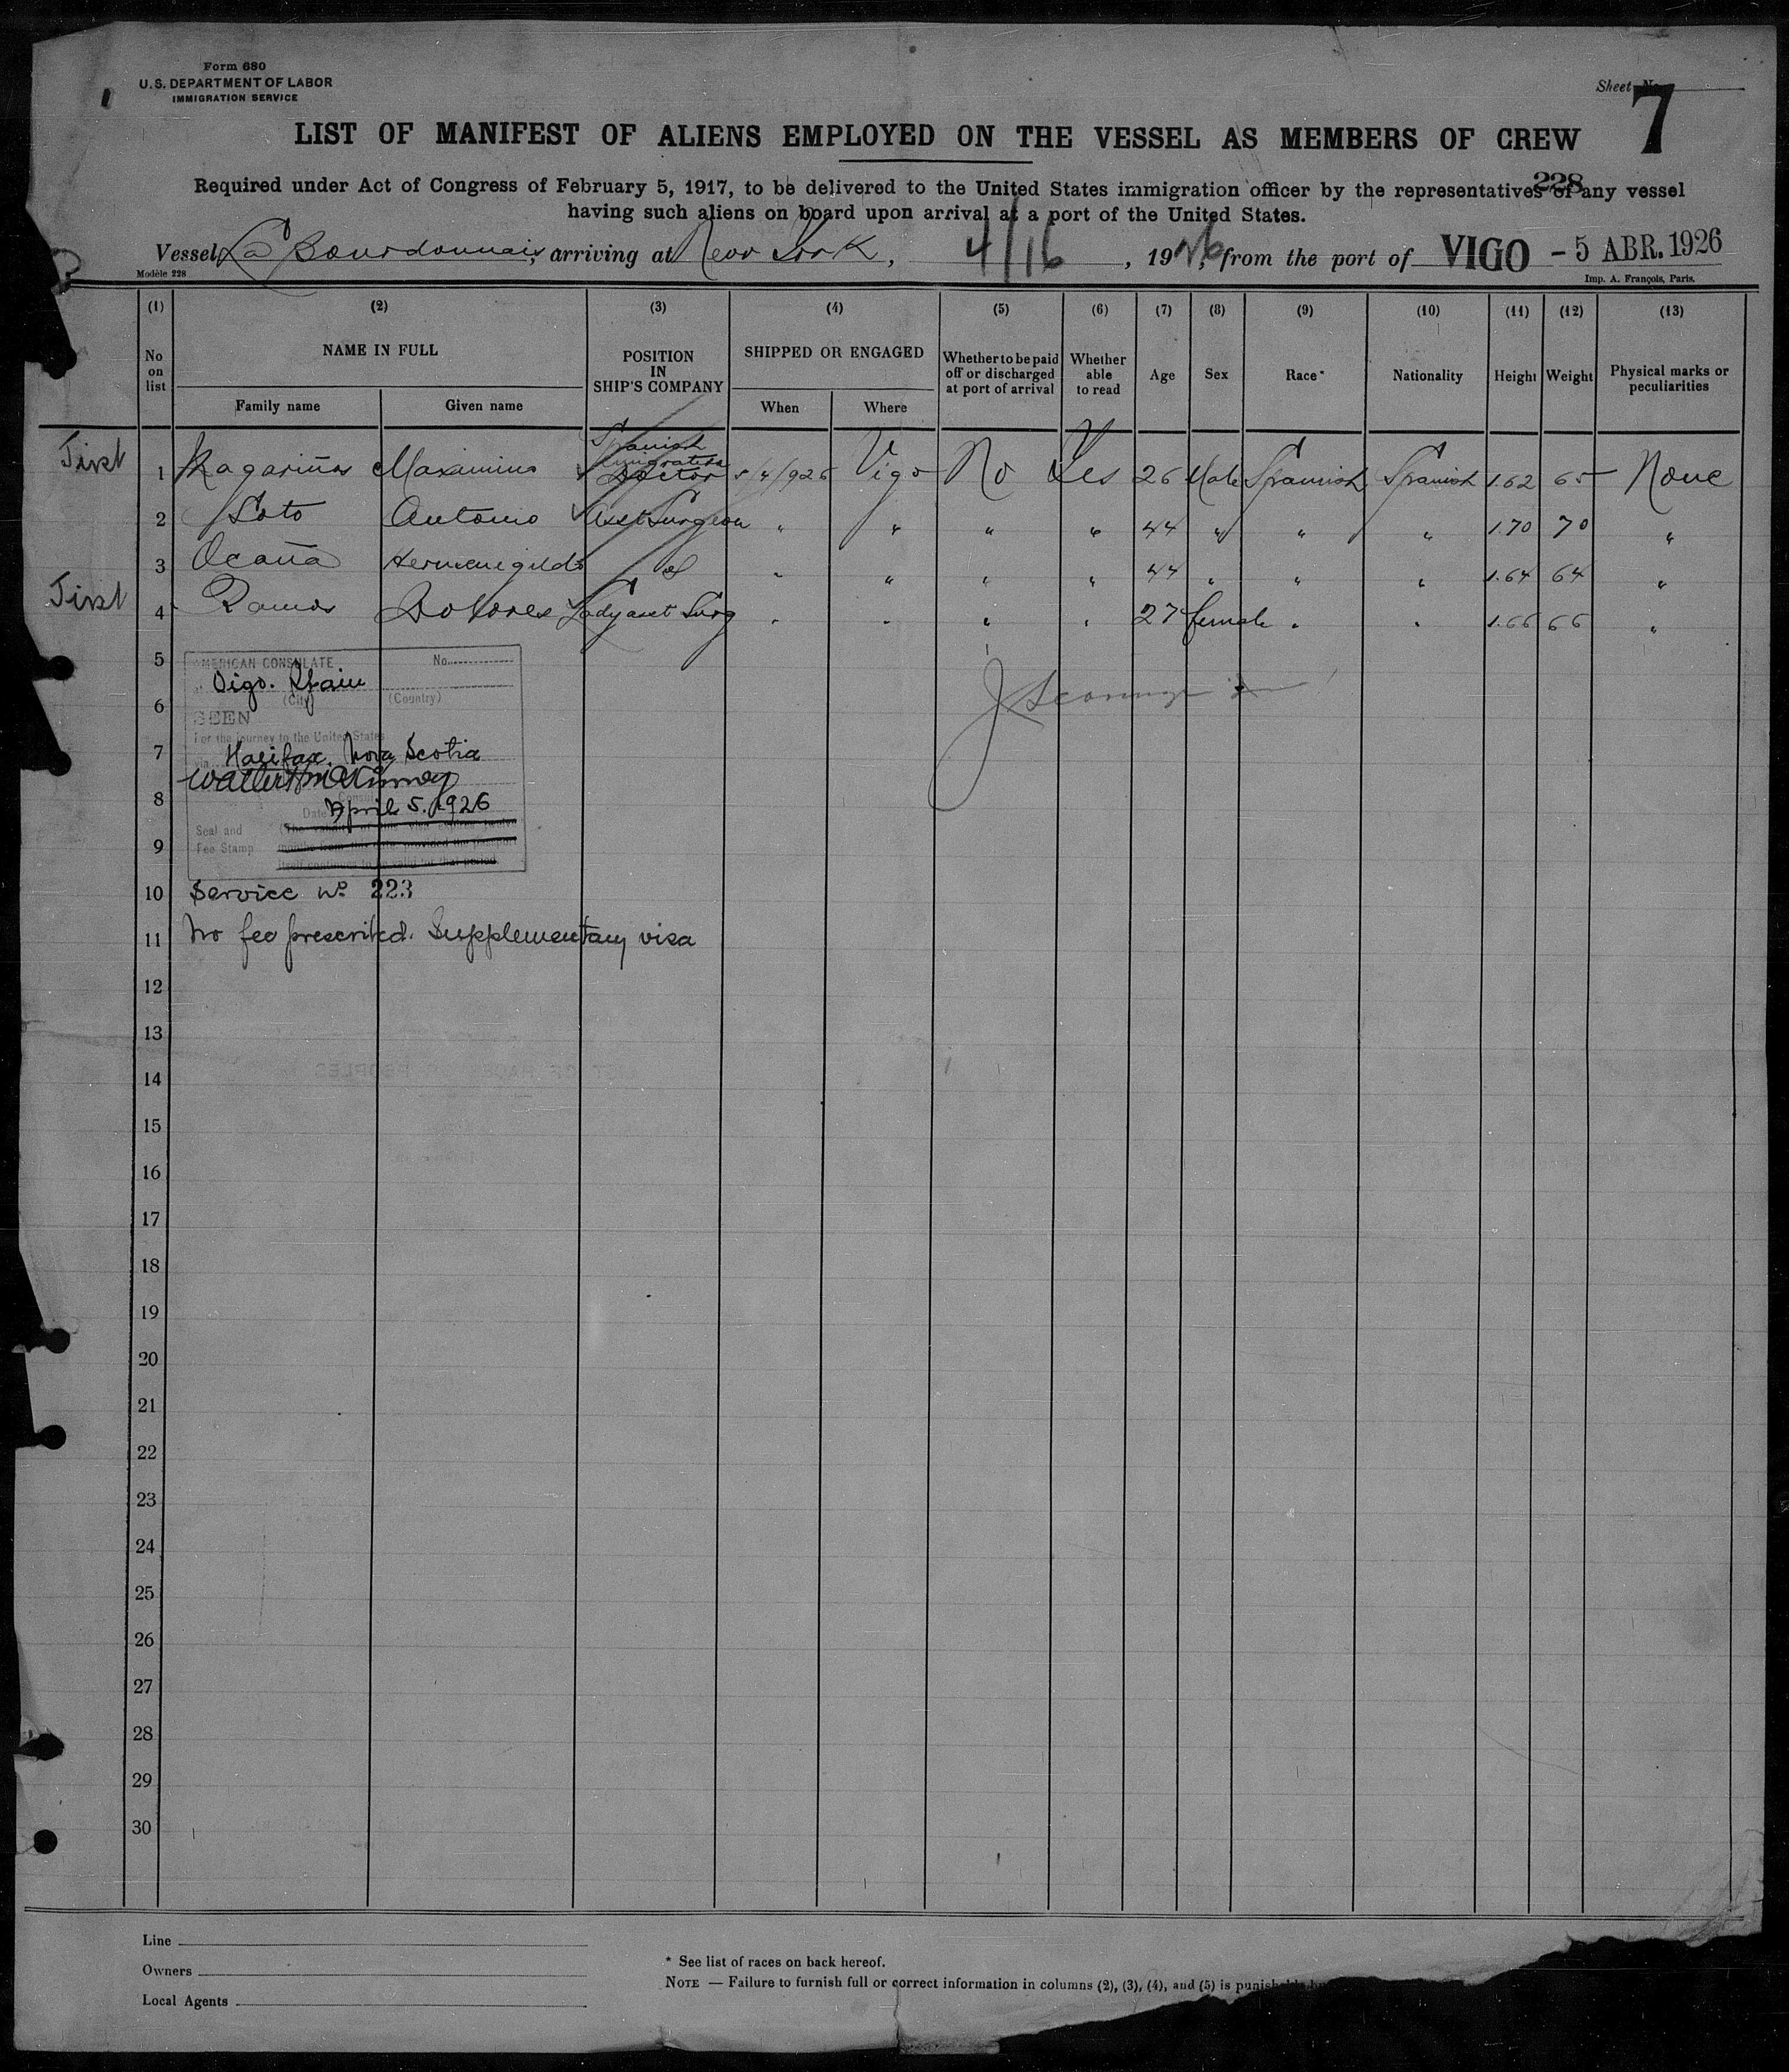 Form 680
U. S. DEPARTMENT OF LABOR
IMMIGRATION SERVICE
Sheet No
7
LIST OF MANIFEST OF ALIENS EMPLOYED ON THE VESSEL AS MEMBERS OF CREW
228
Required under Act of Congress of February 5, 1917, to be delivered to the United States immigration officer by the representatives of any vessel
having such aliens on board upon arrival at a port of the United States.
Vessel La Bourdonnais, arriving at New York, 4/16, 1926, from the port of VIGO - 5 ABR. 1926
Modèle 228
Imp. A. François, Paris.
(1) (2) (3) (4) (5) (6) (7) (8) (9) (10) (11) (12) (13)
No on list NAME IN FULL POSITION IN SHIP'S COMPANY SHIPPED OR ENGAGED Whether to be paid off or discharged at port of arrival Whether able to read Age Sex Race* Nationality Height Weight Physical marks or peculiarities
Family name Given name When Where
First 1 Magariños Maximino Spanish Immigration Doctor 5/4/926 Vigo No Yes 26 Male Spanish Spanish 1.62 65 None
2 Soto Antonio Asst Surgeon " " " " 44 " " " 1.70 70 "
3 Ocaña Hermenegildo " " " " 44 " " " 1.64 64 "
First 4 Ramos Dolores Lady asst Surg " " " " 27 female " " 1.66 66 "
5
AMERICAN CONSULATE No.
Vigo. Spain
(City) (Country)
6
SEEN
For the journey to the United States
7
Halifax, Nova Scotia
Walter H McKinney
8
Date April 5. 1926
Seal and
9
Fee Stamp
10 Service No 223
11 No fee prescribed. Supplementary visa
12
13
14
15
16
17
18
19
20
21
22
23
24
25
26
27
28
29
30
Line
Owners
Local Agents
* See list of races on back hereof.
NOTE — Failure to furnish full or correct information in columns (2), (3), (4), and (5) is punishable by